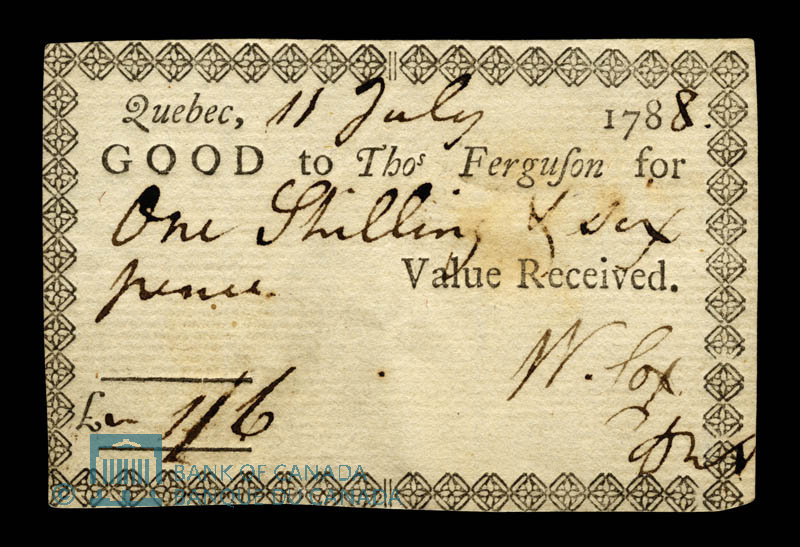 Quebec, 11 July 1788.
GOOD to Thoˢ Ferguſon for
One Shilling & six
pence Value Received.
W. Cox
£ 1/6
© BANK OF CANADA
BANQUE DU CANADA